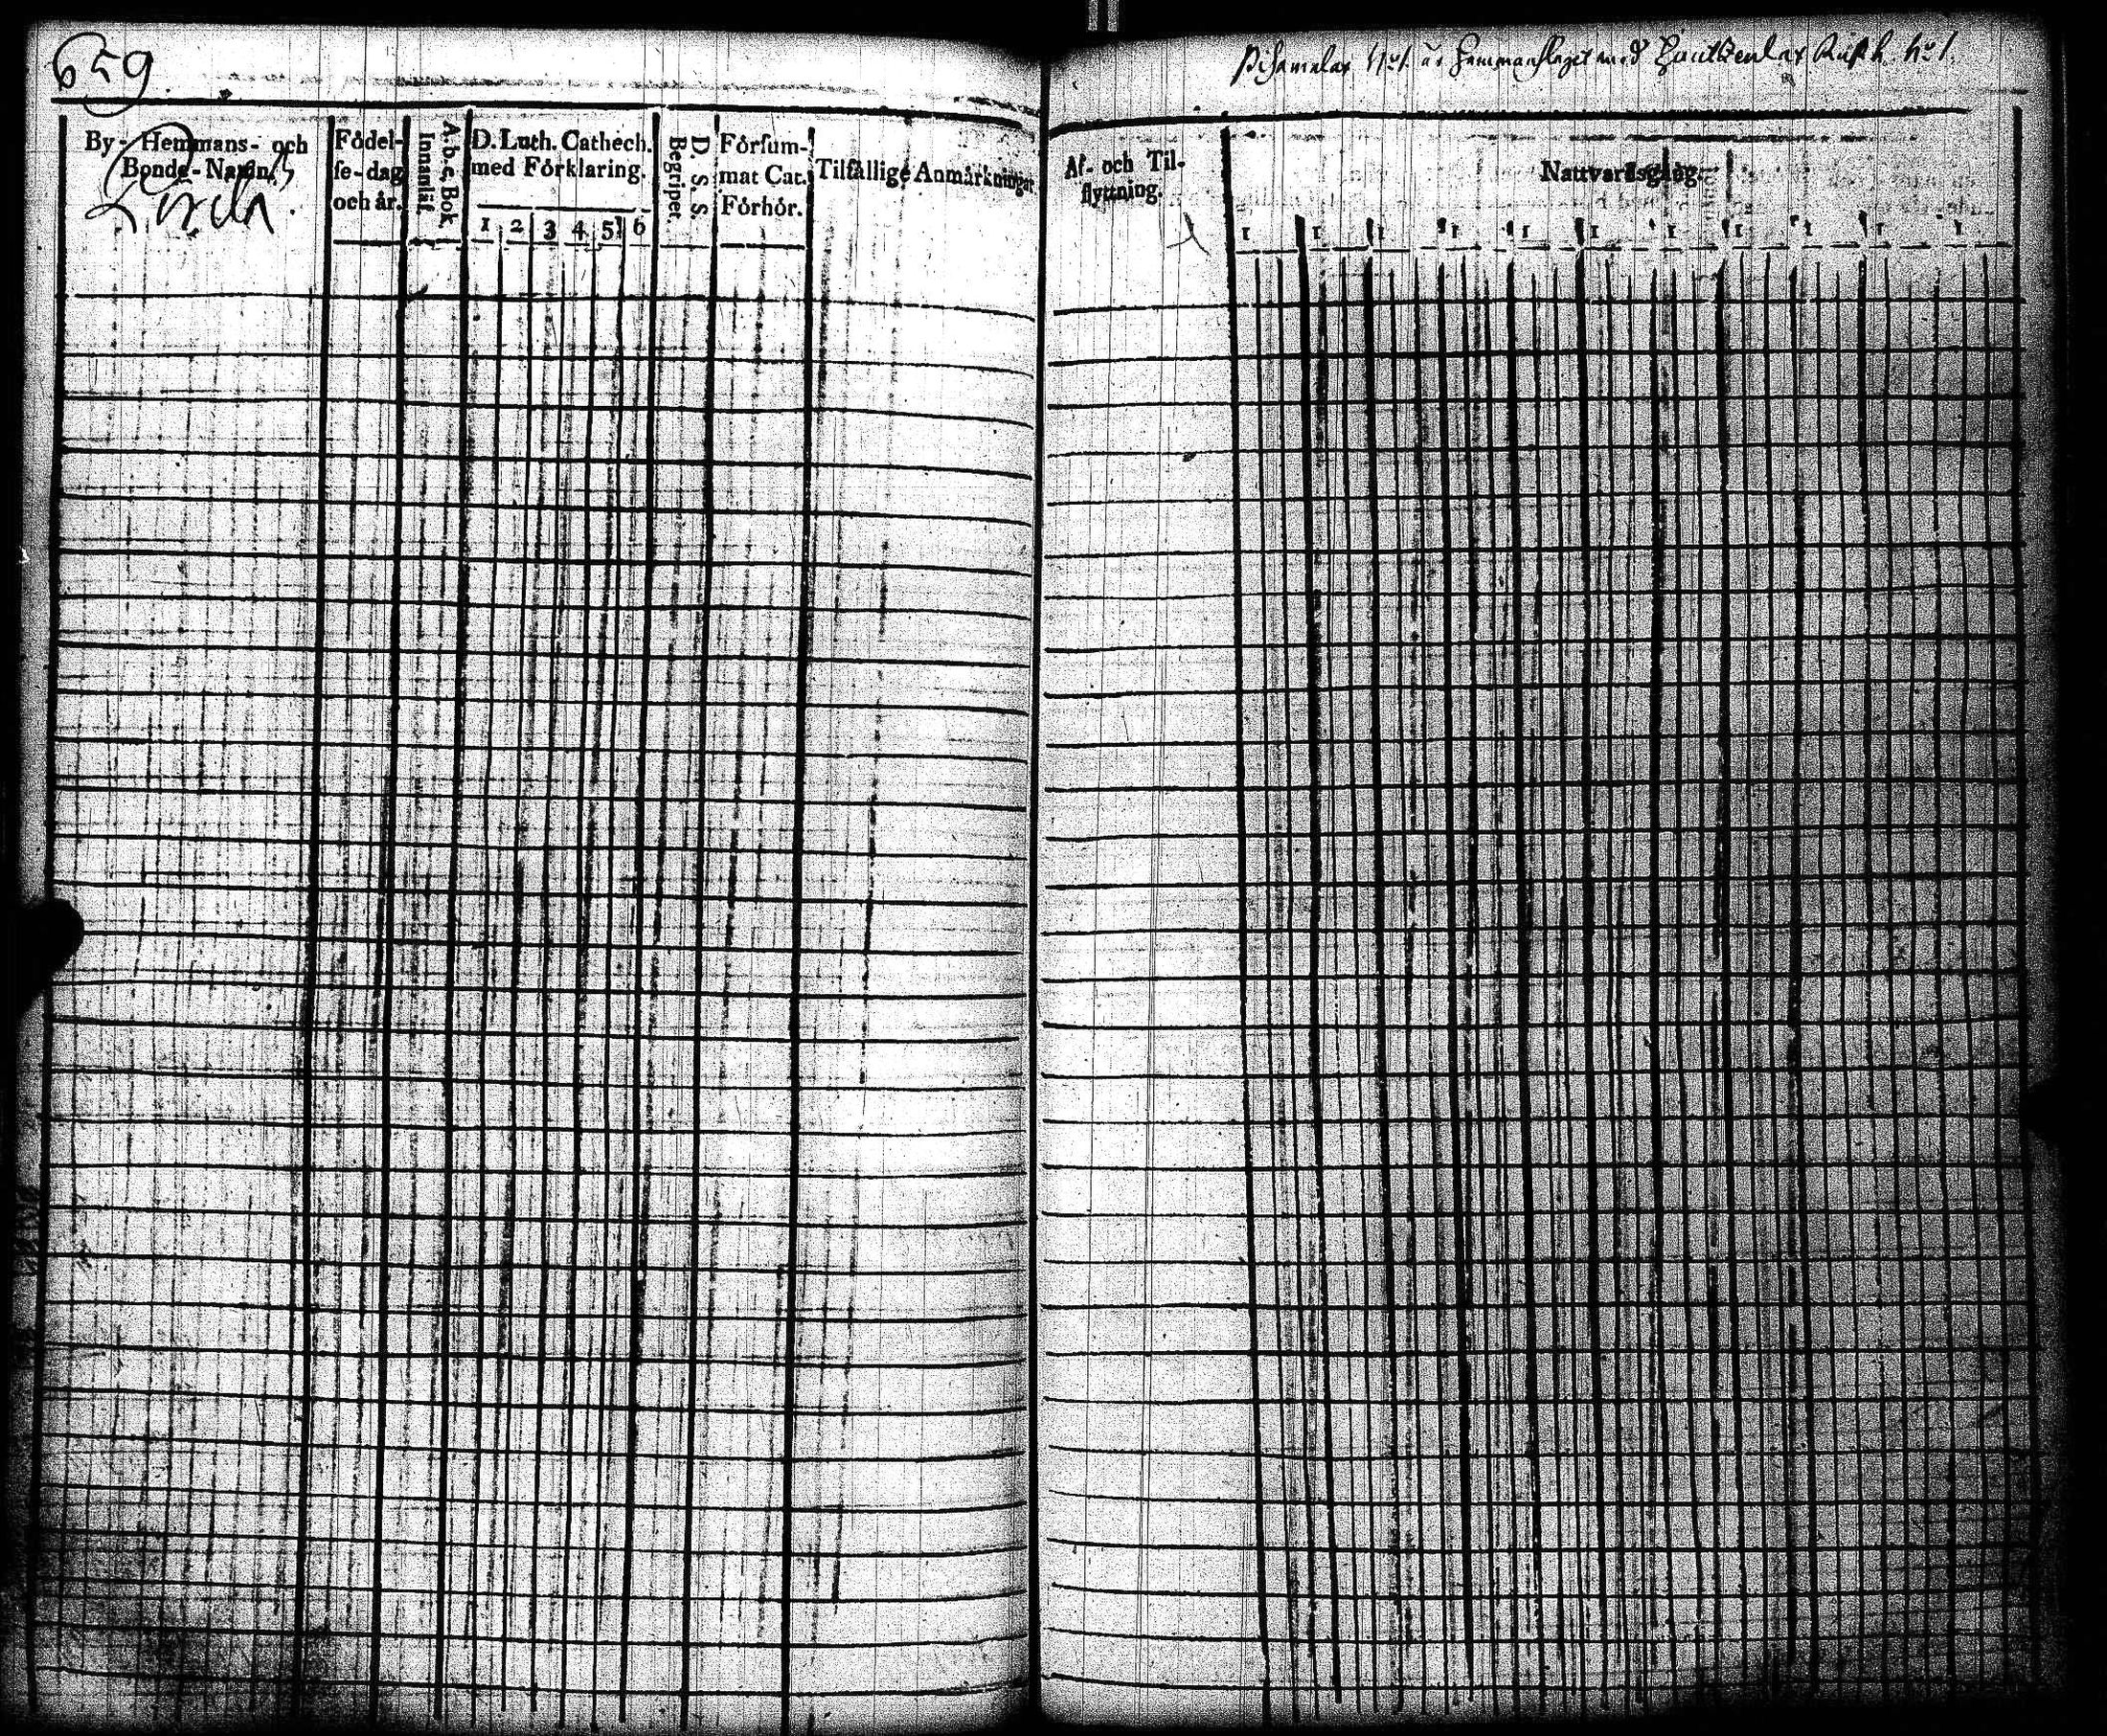 659
Pihamalax N:o 1. är Hemmanslagit med Hautkenlax Rusth. N:o 1.
By- Hemmans- och Bonde-Namn.
Födelse-dag och år.
A. b. c. Bok
Innanläs.
D. Luth. Cathech. med Förklaring.
1 2 3 4 5 6
D. S. S. Begripet.
Försummat Cat. Förhör.
Tilfällige Anmärkningar
Af- och Tilflyttning.
Nattvardsgång.
1 1 1 1 1 1 1 1 1 1 1